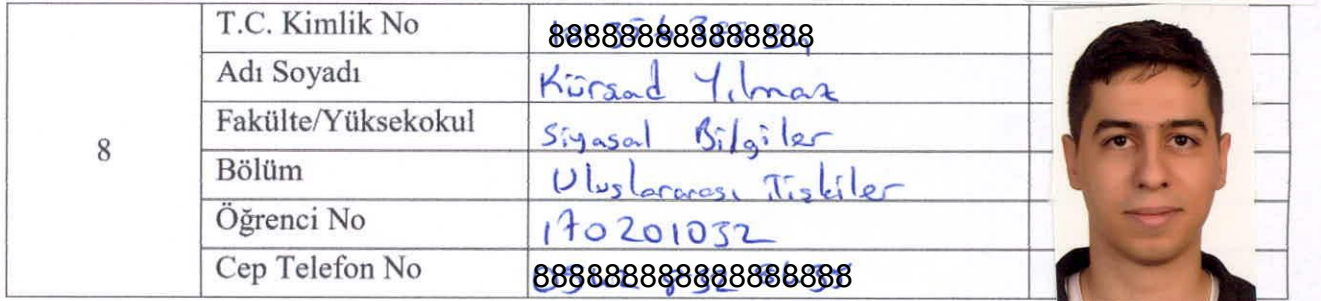 8
T.C. Kimlik No 88888888888888
Adı Soyadı Kürşad Yılmaz
Fakülte/Yüksekokul Siyasal Bilgiler
Bölüm Uluslararası İlişkiler
Öğrenci No 170201032
Cep Telefon No